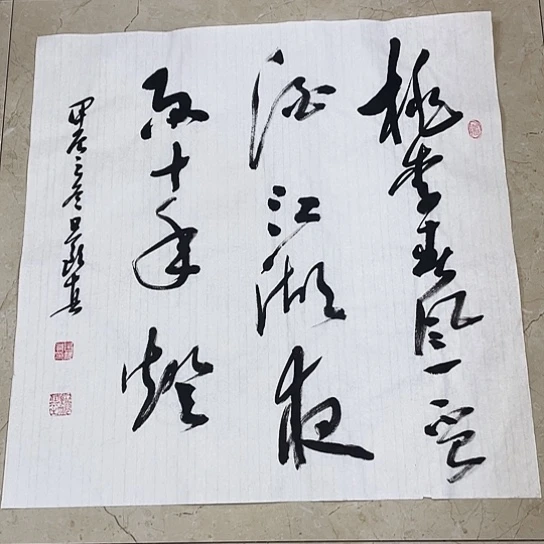 桃李春风一杯
酒江湖夜
雨十年灯
甲辰之冬